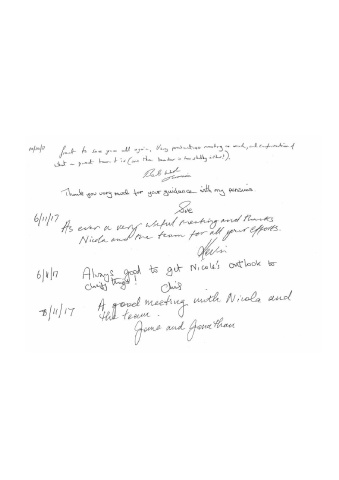 Great to see you all again, Very productive meeting as and, of
what a great team it is (
Thank you very much for your guidance with my pensions
Sue
6/11/17 As ever a very useful meeting and thanks
Nicola and the team for all your efforts.
6/8/17 Always good to get Nicola's outlook to
clarify things! Chris
8/11/17 A good meeting with Nicola and
the team.
Jane and Jonathan